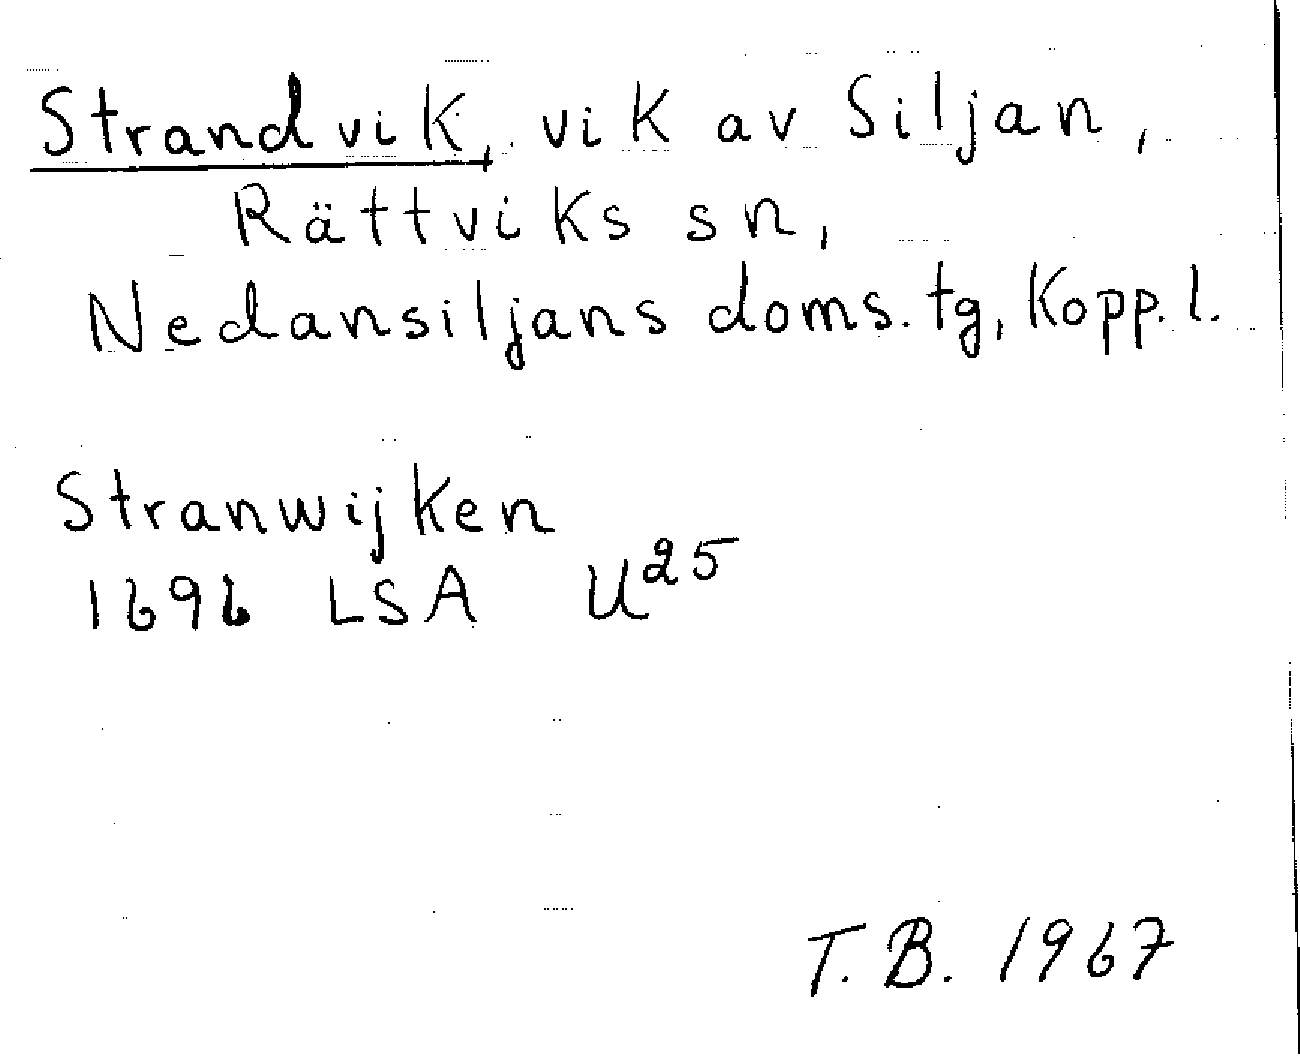 Strandvik, vik av Siljan,
Rättviks sn,
Nedansiljans doms. tg, Kopp. l.
Stranwijken
1696 LSA U25
T. B. 1967